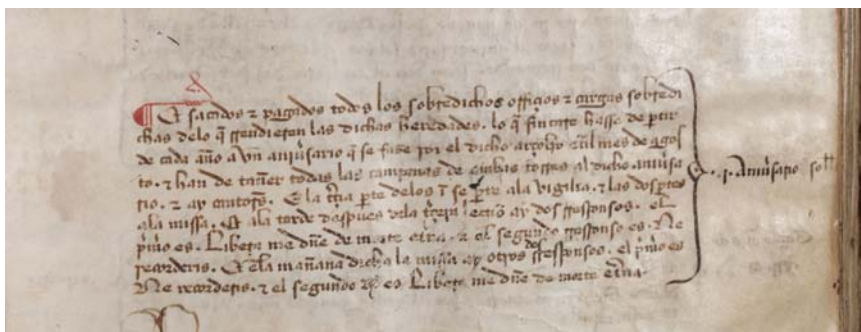 E sacados ⁊ pagados todos los sobredichos officios ⁊ cargas sobredi
chas delo q̃ rrendieren las dichas heredades. lo q̃ fincare hasse de partir
de cada año a vn aniũsario q̃ se faze por el dicho arçobpo enl mes de agos
to. ⁊ han de tañer todas las campanas de embas torres al dicho aniũsa
rio. ⁊ ay cantores. E la tr̃ia p̃te delos mr̃s se p̃te ala vigilia. ⁊ las dos p̃tes
ala missa. Et ala tarde despues dela tr̃çera lection ay dos rresponsos. el
p̃mo es. Libera me dñe de morte etrã. ⁊ el segundo rresponso es. Ne
recorderis. E enla mañana dicha la missa ay otros dos rresponsos. el p̃mo es
Ne recorderis. ⁊ el segundo es Libera me dñe de morte etr̃na.
.j. Aniũsario sol̃l